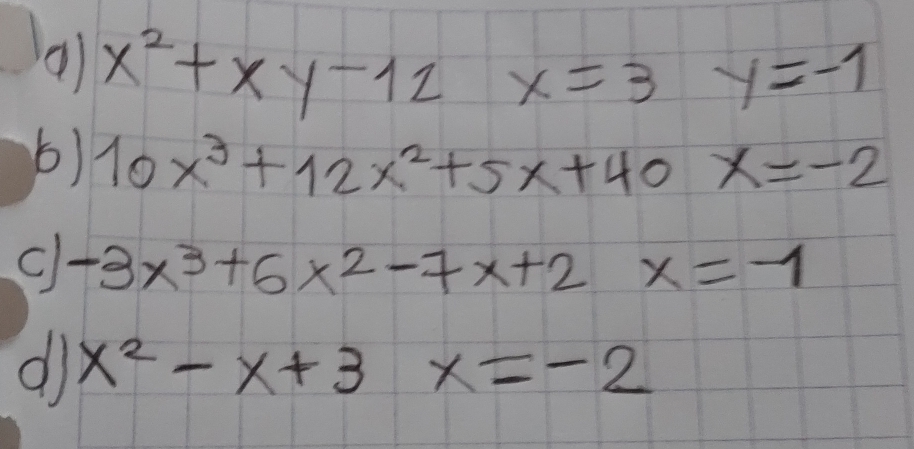 a) x² + xy - 12 x = 3 y = -1
b) 10x³ + 12x² + 5x + 40 x = -2
c) -3x³ + 6x² - 7x + 2 x = -1
d) x² - x + 3 x = -2